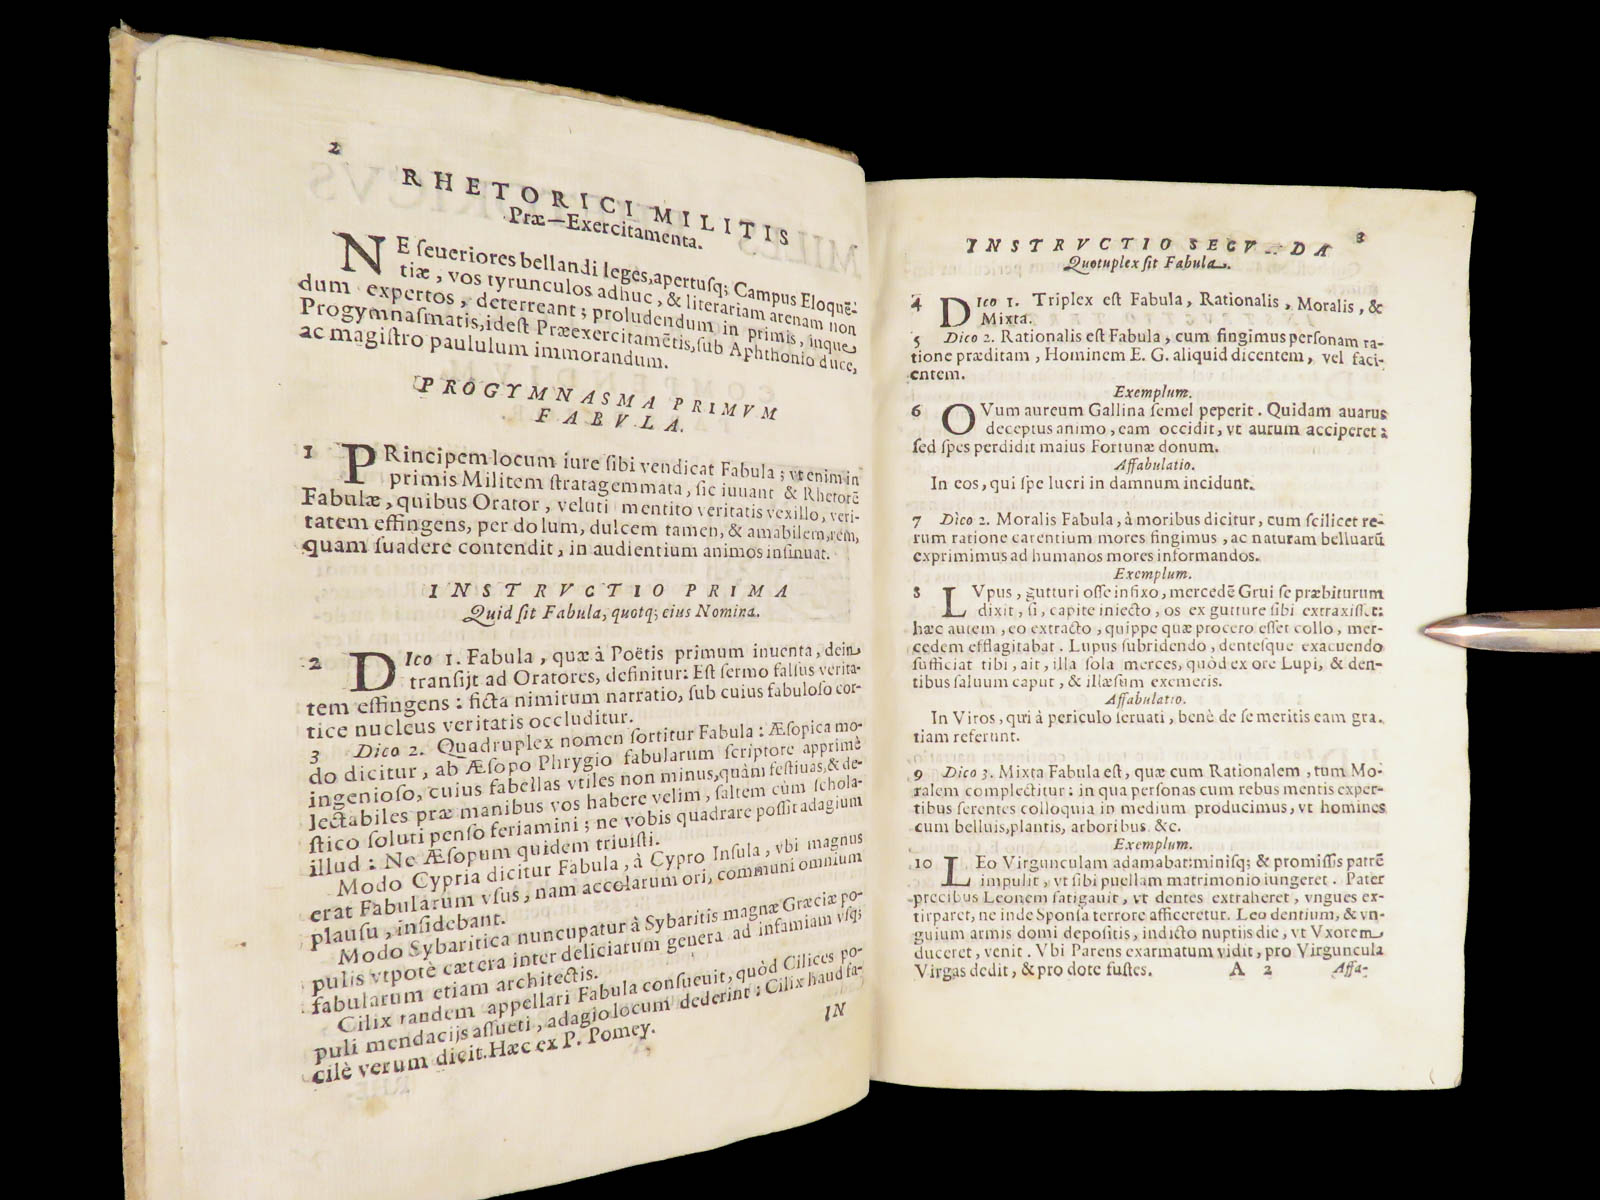 2
RHETORICI MILITIS
Præ—Exercitamenta.
NE ſeueriores bellandi leges, apertuſq; Campus Eloquē-
tiæ, vos tyrunculos adhuc, & literariam arenam non
dum expertos, deterreant; proludendum in primis, inque
Progymnaſmatis, ideſt Præexercitamētis, ſub Aphthonio duce,
ac magiſtro paululum immorandum.
PROGYMNASMA PRIMVM
FABVLA.
1 PRincipem locum iure ſibi vendicat Fabula; vt enim in
primis Militem ſtratagemmata, ſic iuuant & Rhetorē
Fabulæ, quibus Orator, veluti mentito veritatis vexillo, veri-
tatem effingens, per dolum, dulcem tamen, & amabilem, rem,
quam ſuadere contendit, in audientium animos inſinuat.
INSTRVCTIO PRIMA
Quid ſit Fabula, quotq; eius Nomina.
2 DIco 1. Fabula, quæ à Poëtis primum inuenta, dein
tranſijt ad Oratores, definitur: Eſt ſermo falſus verita-
tem effingens: ficta nimirum narratio, ſub cuius fabuloſo cor-
tice nucleus veritatis occluditur.
3 Dico 2. Quadruplex nomen ſortitur Fabula: Æſopica mo-
do dicitur, ab Æſopo Phrygio fabularum ſcriptore apprimè
ingenioſo, cuius fabellas vtiles non minus, quàm feſtiuas, & de-
lectabiles præ manibus vos habere velim, ſaltem cùm ſchola-
ſtico ſoluti penſo feriamini; ne vobis quadrare poſſit adagium
illud: Ne Æſopum quidem triuiſti.
Modo Cypria dicitur Fabula, à Cypro Inſula, vbi magnus
erat Fabularum vſus, nam accolarum ori, communi omnium
plauſu, inſidebant.
Modo Sybaritica nuncupatur à Sybaritis magnæ Græciæ po-
pulis vtpotè cætera inter deliciarum genera ad infamiam vſq;
fabularum etiam architectis.
Cilix tandem appellari Fabula conſueuit, quòd Cilices po-
puli mendacijs aſſueti, adagio locum dederint: Cilix haud fa-
cilè verum dicit. Hæc ex P. Pomey.
IN
3
INSTRVCTIO SECVNDA
Quotuplex ſit Fabula.
4 DIco 1. Triplex eſt Fabula, Rationalis, Moralis, &
Mixta.
5 Dico 2. Rationalis eſt Fabula, cum fingimus perſonam ra-
tione præditam, Hominem E. G. aliquid dicentem, vel faci-
entem.
Exemplum.
6 OVum aureum Gallina ſemel peperit. Quidam auarus
deceptus animo, eam occidit, vt aurum acciperet:
ſed ſpes perdidit maius Fortunæ donum.
Affabulatio.
In eos, qui ſpe lucri in damnum incidunt.
7 Dico 2. Moralis Fabula, à moribus dicitur, cum ſcilicet re-
rum ratione carentium mores fingimus, ac naturam belluarū
exprimimus ad humanos mores informandos.
Exemplum.
8 LVpus, gutturi oſſe infixo, mercedē Grui ſe præbiturum
dixit, ſi, capite iniecto, os ex gutture ſibi extraxiſſet:
hæc autem, eo extracto, quippe quæ procero eſſet collo, mer-
cedem efflagitabat. Lupus ſubridendo, denteſque exacuendo
ſufficiat tibi, ait, illa ſola merces, quòd ex ore Lupi, & den-
tibus ſaluum caput, & illæſum exemeris.
Affabulatio.
In Viros, qui à periculo ſeruati, benè de ſe meritis eam gra-
tiam referunt.
9 Dico 3. Mixta Fabula eſt, quæ cum Rationalem, tum Mo-
ralem complectitur: in qua perſonas cum rebus mentis exper-
tibus ſerentes colloquia in medium producimus, vt homines
cum belluis, plantis, arboribus &c.
Exemplum.
10 LEo Virgunculam adamabat: miniſq; & promiſſis patrē
impulit, vt ſibi puellam matrimonio iungeret. Pater
precibus Leonem fatigauit, vt dentes extraheret, vngues ex-
tirparet, ne inde Sponſa terrore afficeretur. Leo dentium, & vn-
guium armis domi depoſitis, indicto nuptijs die, vt Vxorem
duceret, venit. Vbi Parens exarmatum vidit, pro Virguncula
Virgas dedit, & pro dote fuſtes. A 2 Affa-